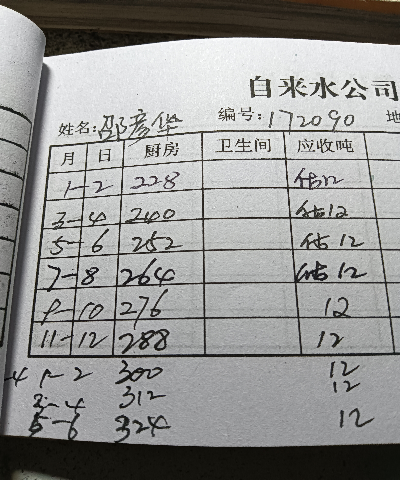 自来水公司
姓名:邵彦华 编号:172090
月 日 厨房 卫生间 应收吨
1-2 228 估12
3-4 240 估12
5-6 252 估12
7-8 264 估12
9-10 276 12
11-12 288 12
1-2 300 12
3-4 312 12
5-6 324 12